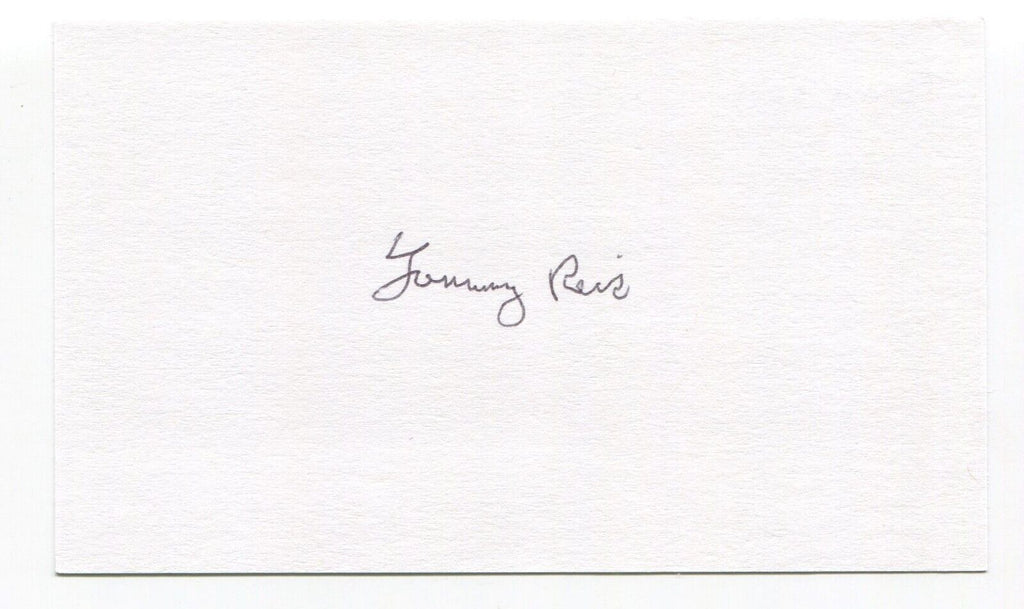 Tommy Reis